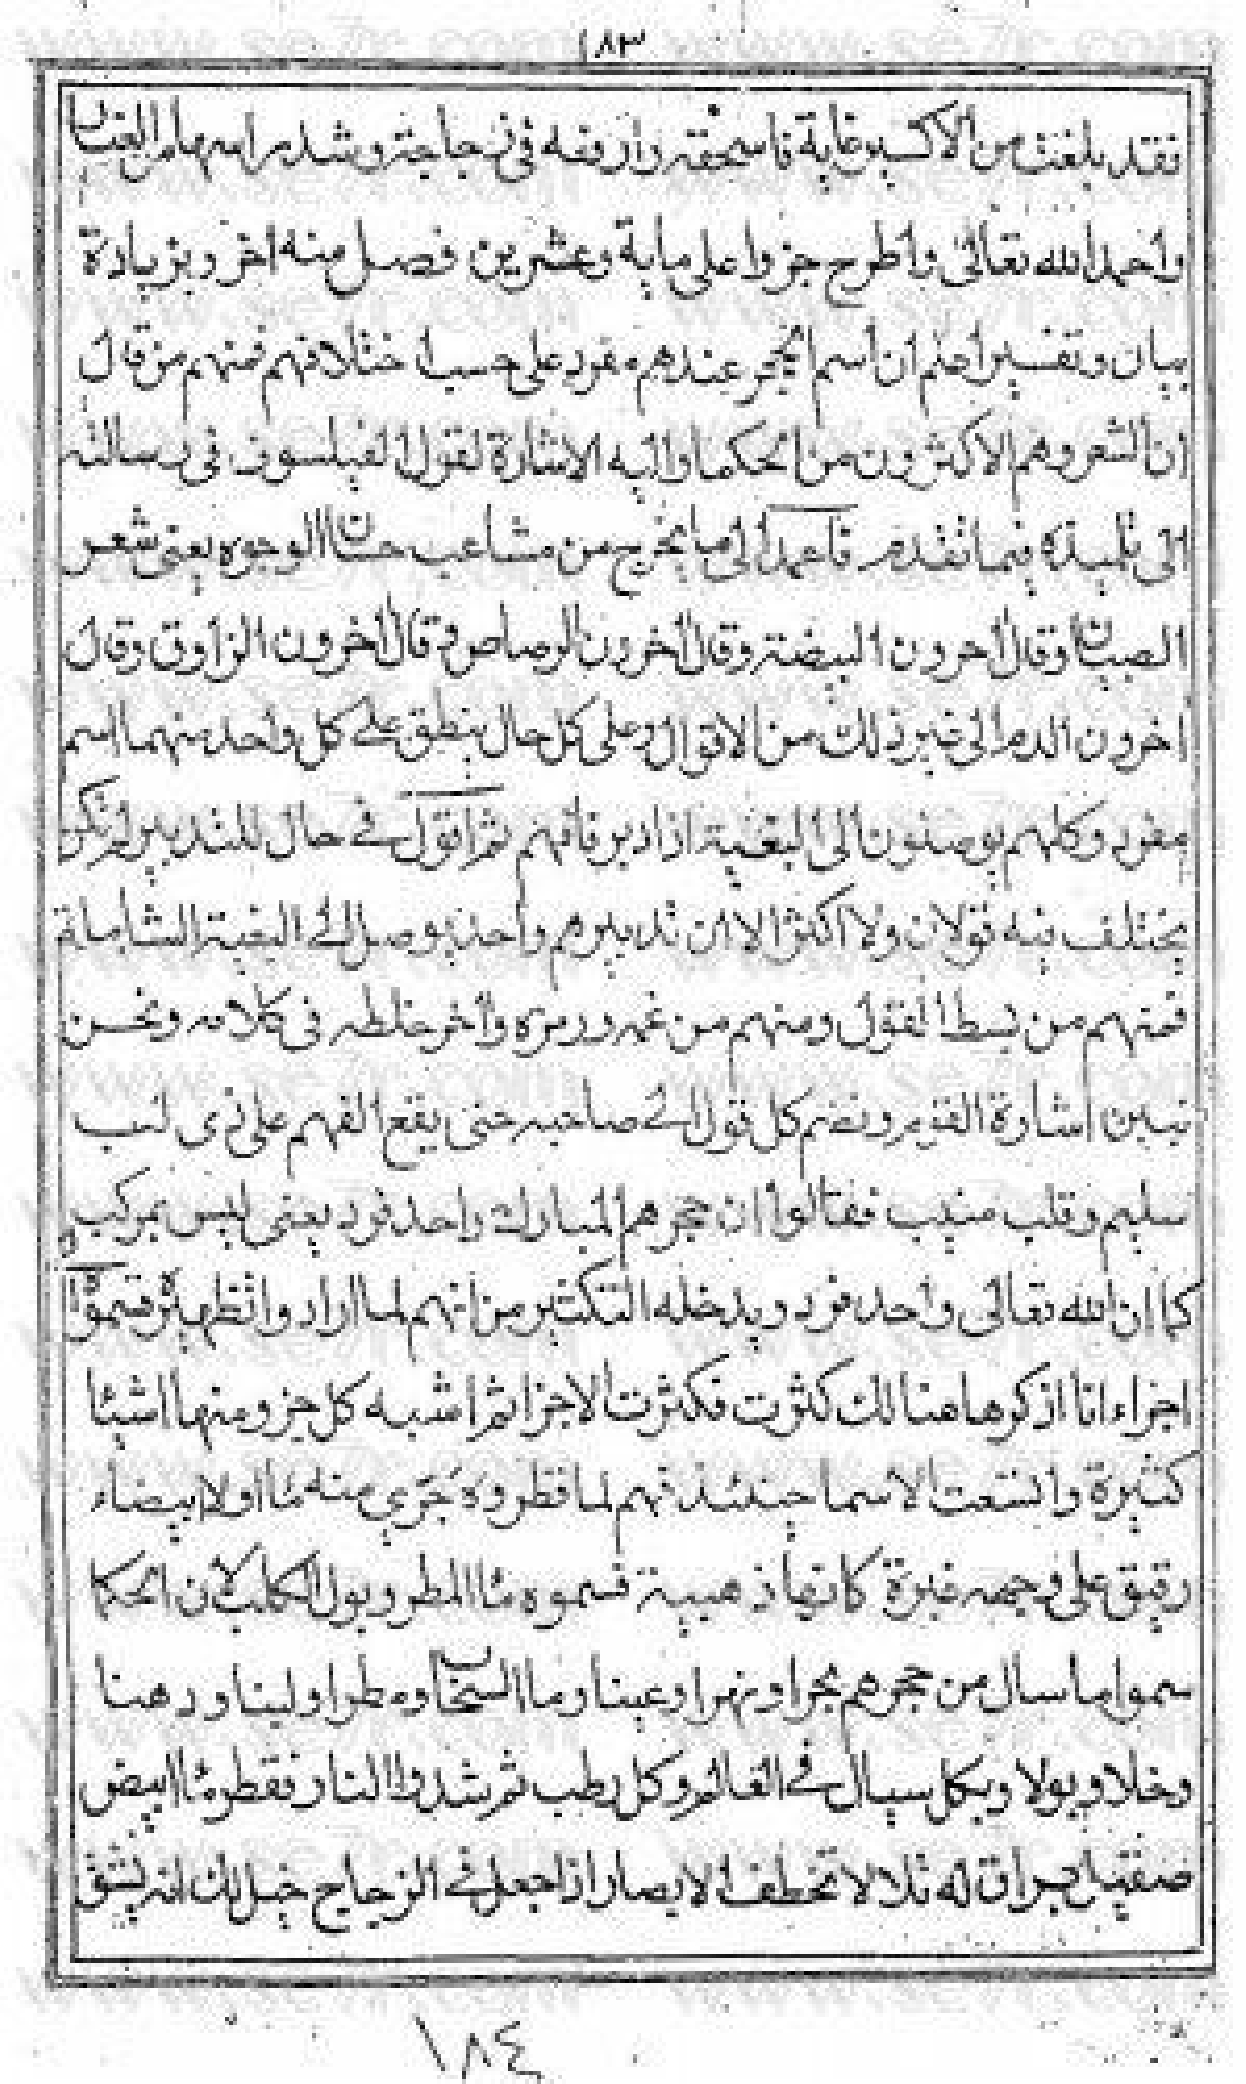 ١٨٣
فقد بلغت من الاكسير غاية فاسحقه وارفعه في زجاجة وشد راسها من الغبار
واحمد الله تعالى واطرح جزوا على ماية وعشرين فصل منه اخر وبزيادة
بيان وتفسير اعلم ان اسم الحجر عندهم مفرد على حسب اختلافهم فمنهم من قال
ان الشعر وهم الاكثرون من الحكما واليه الاشارة لقول الفيلسوف في رسالته
الى تلميذه فيما تقدم فاعمد الى ما يخرج من مشاعب حسان الوجوه يعني شعر
الصبيان وقال اخرون البيضة وقال اخرون الرصاص وقال اخرون الزاوق وقال
اخرون الدم الى غير ذلك من الاقوال وعلى كل حال ينطق على كل واحد منهما اسم
مفرد وكلهم يوصلون الى البغية اذا دبر فافهم ثم اقول في حال للتدبير لم يكن
يختلف فيه قولان ولا اكثر الا ان تدبيرهم واحد يوصل الى البغية الشاملة
فمنهم من بسط القول ومنهم من غمه ورمزه واخر خلطه في كلامه ونحن
نبين اشارة القوم ونضم كل قول الى صاحبه حتى يقع الفهم على ذي لب
سليم وقلب منيب فقالوا ان حجرهم المبارك واحد فرد يعني ليس بمركب
كما ان الله تعالى واحد فرد ويدخله التكثير من انهم لما ارادوا تطهيره قسموه
اجزاء انا اذكرها هنا لك كثرت فكثرت الاجزا ثم اشبه كل جزو منها اشيا
كثيرة واتسعت الاسما حينئذ فهم لما قطروه جرى منه ما اولا بيضاء
رقيق على وجهه غبرة كانها ذهبية فسموه ما المطر وبول الكلب لان الحكما
سموا ما سال من حجرهم بحرا ونهرا وعينا وما السحاب ومطرا ولبنا ودهنا
وخلا وبولا وبكل سيال في العالم وكل رطب ثم شدوا النار فقطر ما ابيض
صقيل براق له تلالا تخطف الابصار اذا جعل في الزجاج خيل لك انه يشق
١٨٤